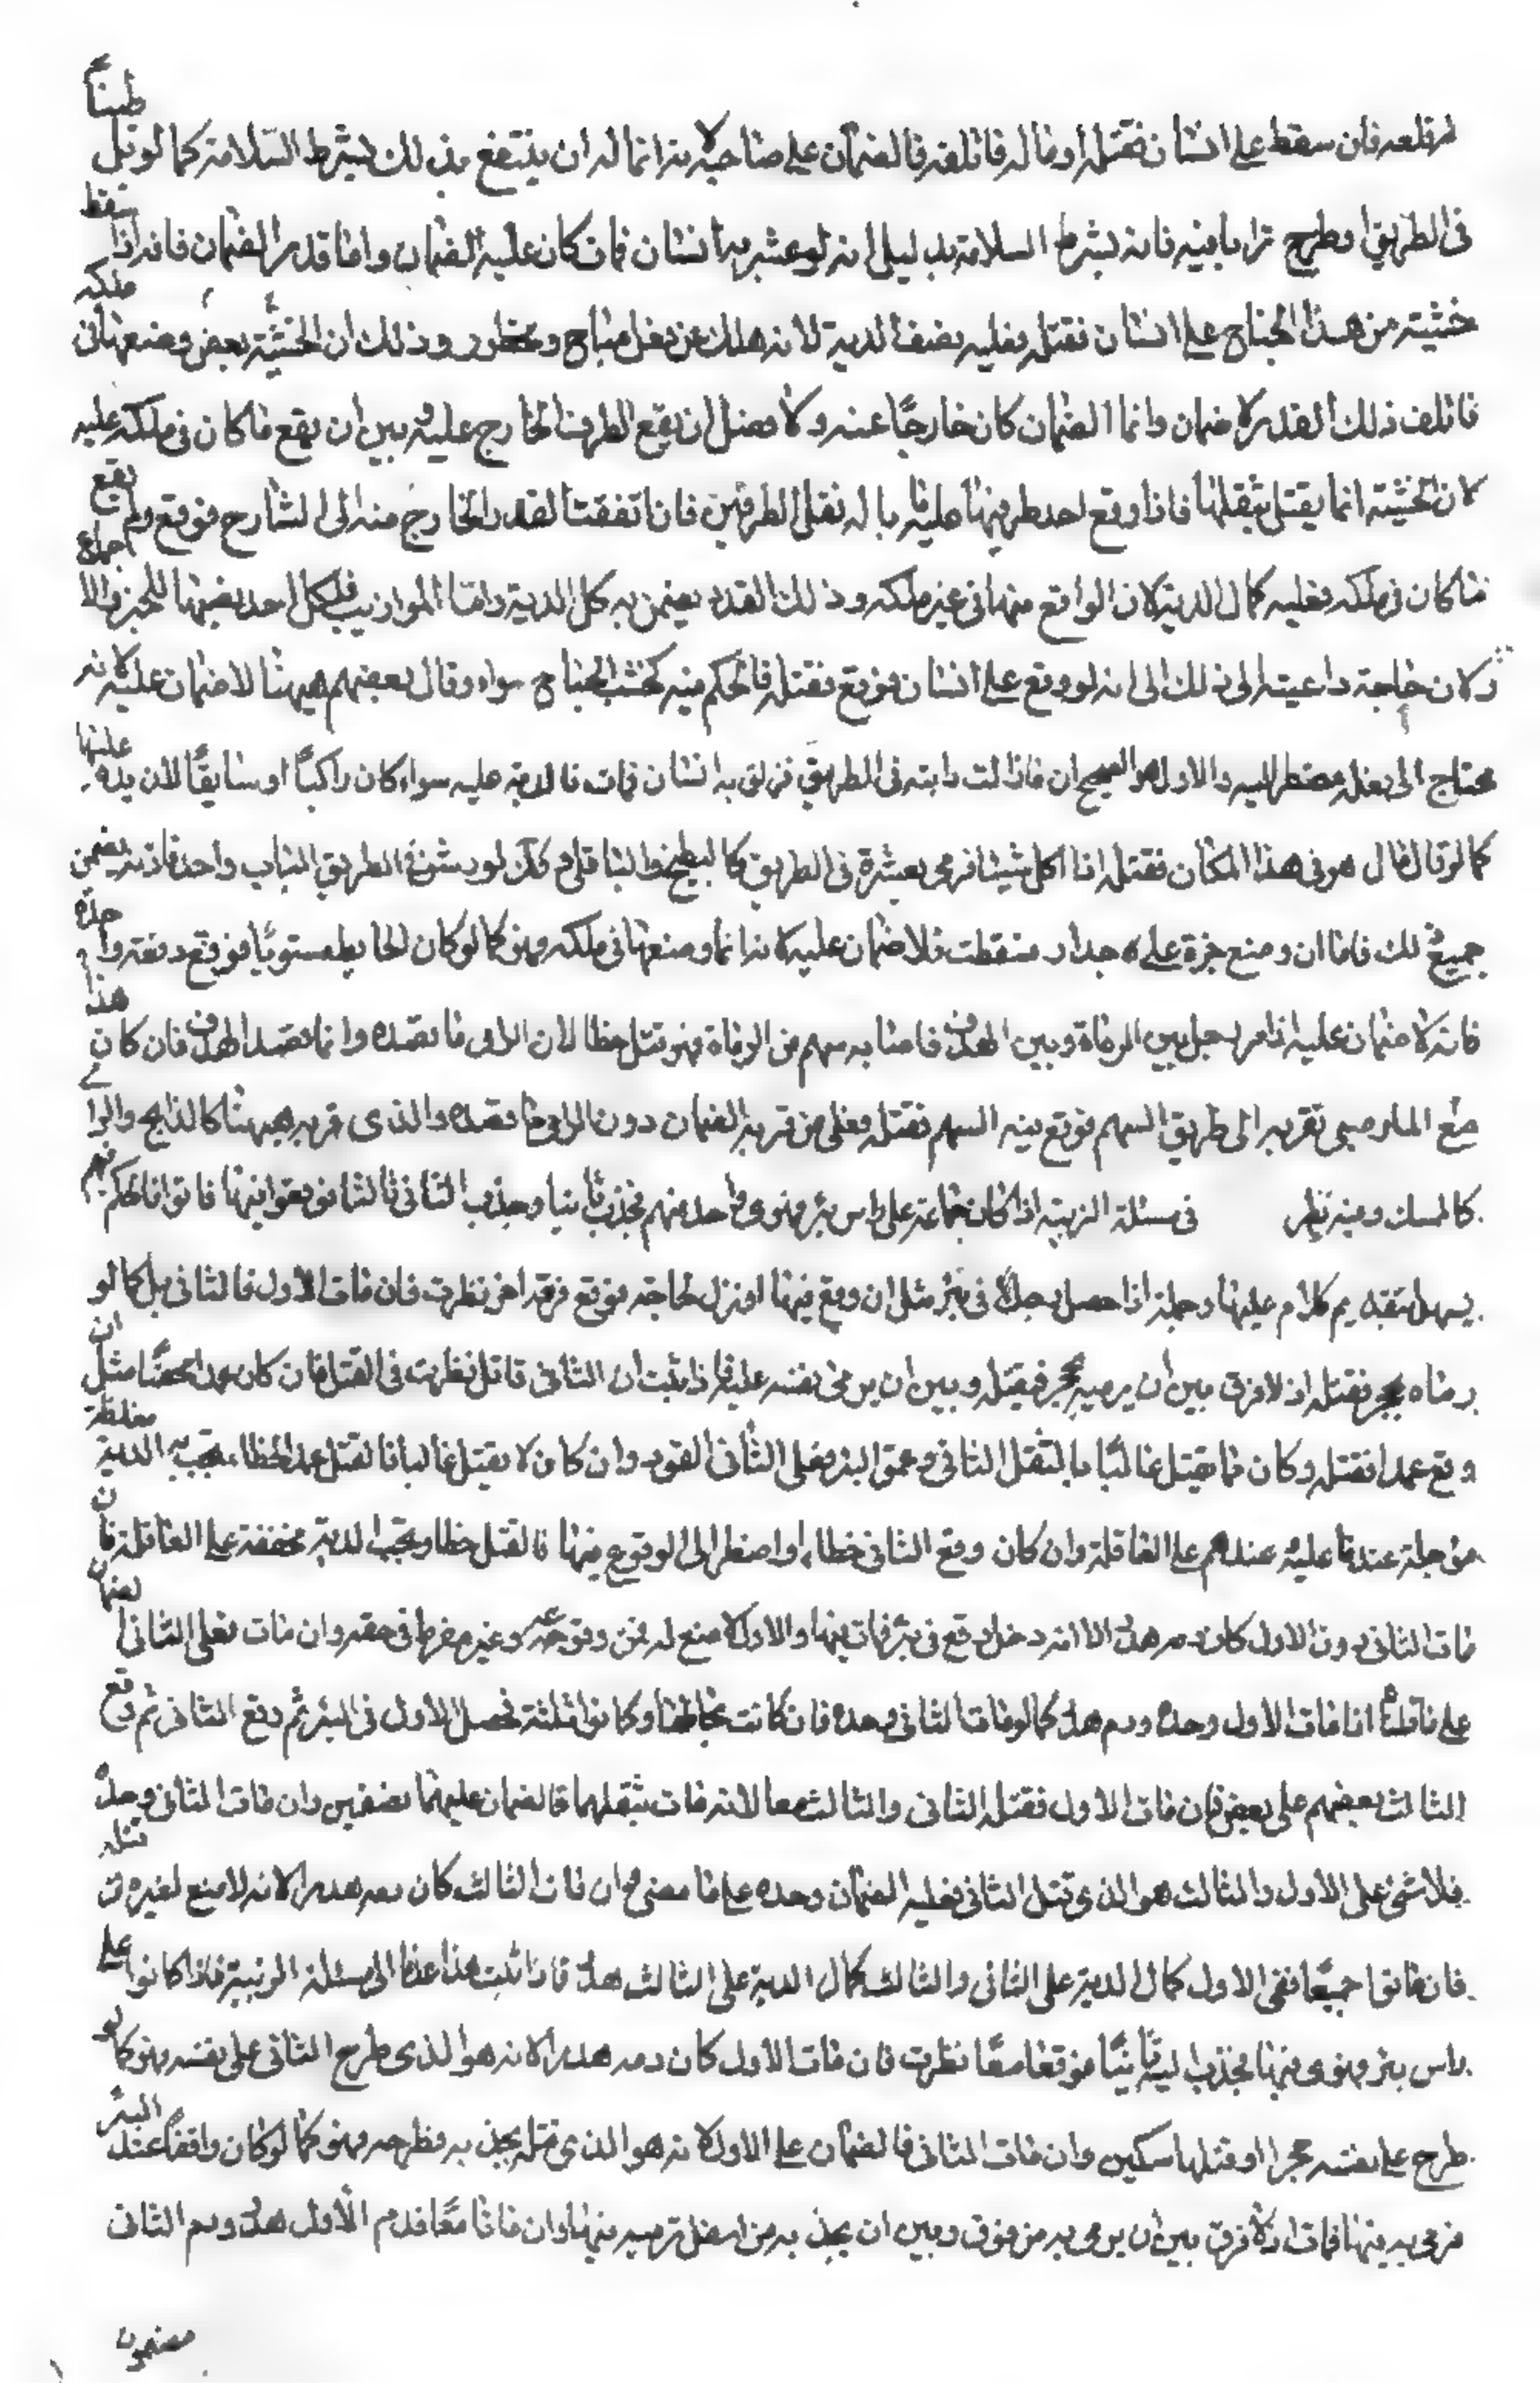 لم قلعه فان سقط على انسان فقتله او مال فاتلفه فالضمان على صاحبه لانه انما له ان ينتفع بذلك بشرط السلامة كما لو بل طينا
في الطريق او طرح ترابا فيه فانه بشرط السلامة بدليل انه لو عثر به انسان فمات كان عليه الضمان واما قدر الضمان فانه اذا سقط
خشبة من هذا الجناح على انسان فقتله فعليه نصف الدية لانه هلك عن فعل مباح ومحظور وذلك ان الخشبة بعض وضعها في ملكه
فاتلف ذلك القدر لا ضمان وانما الضمان كان خارجا عنه ولا فصل ان يقع الطرف الخارج عليه وبين ان يقع ما كان في ملكه عليه
لان الخشبة انما يقتل بثقلها فاذا وقع احد طرفيها عليه ناله ثقل الطرفين فان اتفقت القدر الخارج منه الى الشارع فوقع ولم يقع
ما كان في ملكه فعليه كمال الدية لان الواقع منها في غير ملكه وذلك القدر يضمن به كل الدية واما الموازيب فلكل احد نصبها للخبر والاجماع
ولان حاجة داعية الى ذلك الى انه لو وقع على انسان فوقع فقتله فالحكم فيه كخشب الجناح سواء وقال بعضهم هيهنا لا ضمان عليه لانه
محتاج الى فعله مضطر اليه والاول هو الصحيح ان فاذا بالت دابته في الطريق فزلق به انسان فمات فالدية عليه سواء كان راكبا او سايقا لان يده عليها
كما لو قال مال هو في هذا المكان فقتله اذا اكل شيئا فرمى بعشرة في الطريق كالبطيخ والباقلى وكذلك لو رش الطريق الباب واحد فانه يضمن
جميع ذلك فاما ان وضع جرة على جدار فسقطت فلا ضمان عليه لانه انما وضعها في ملكه وهو كما لو كان الحايط مستويا فوقع دفعة واحدة
فانه لا ضمان عليه اذا مر رجل بين الرماة وبين الهدف فاصابه سهم من الرماة فهو قتل خطا لان الرامي ما قصده وانما قصد الهدف فان كان هذا
مع المار صبي فقربه الى طريق السهم فوقع فيه السهم فقتله فعلى من قربه الضمان دون الرامي ما قصده والذي قربه هيهنا كالذابح والرامي
كالممسك وفيه نظر في مسئلة الزبية اذا كان جماعة على راس بئر فهوى واحد منهم فجذب ثانيا وجذب الثاني ثالثا فوقعوا فيها فماتوا فالحكم فيهم
يسهل بتقديم كلام عليها وجملته اذا حصل رجل في بئر مثل ان وقع فيها او نزل لحاجة فوقع فوقه اخر نظرت فان مات الاول فالثاني قاتل كما لو
رماه بحجر فقتله اذ لا فرق بين ان يرميه بحجر فيقتله وبين ان يرمى نفسه عليه فاذا ثبت ان الثاني قاتل نظرت في القتل فان كان عمدا محضا مثل ان
وقع عمدا فقتله وكان مما يقتل غالبا بالثقل الثاني وعمق البئر فعلى الثاني القود وان كان لا يقتل غالبا فالقتل عمد الخطاء تجب به الدية مغلظة
مؤجلة عندنا عليه عندهم على العاقلة وان كان وقع الثاني خطاء او اضطر الى الوقوع فيها فالقتل خطا وتجب الدية مخففة على العاقلة فان
مات الثاني دون الاول كان دمه هدرا الا انه دخل وقع في بئر فمات فيها والاول لا صنع له في وقوعه وغير مفرط في حقه وان ماتا فعلى الثاني الضمان
على ما قلناه اذا مات الاول وحده ودمه هدر كما لو مات الثاني وحده فان كانت بحالها وكانوا ثلثة فحصل الاول في البئر ثم وقع الثاني ثم وقع
الثالث بعضهم على بعض فان مات الاول فقتله الثاني والثالث معا لانه مات بثقلهما فالضمان عليهما نصفين وان مات الثاني وحده
فلا شئ على الاول والثالث هو الذي قتل الثاني فعليه الضمان وحده على ما مضى وان مات الثالث كان دمه هدرا لانه لا صنع لغيره في قتله
فان ماتوا جميعا ففي الاول كمال الدية على الثاني والثالث كمال الدية على الثالث هدر فاذا ثبت هذا عدنا الى مسئلة الزبية فاذا كانوا على
راس بئر فهوى فيها فجذب اليه ثانيا فوقعا معا نظرت فان مات الاول كان دمه هدرا لانه هو الذي طرح الثاني على نفسه فهو كما لو
طرح على نفسه حجرا او قتلها سكين وان مات الثاني فالضمان على الاول لانه هو الذي قتله بجذبه وطرحه فهو كما لو كان واقفا عند البئر
فرمى به فيها فمات اذ لا فرق بين ان يرمى به من فوق وبين ان يجذبه من اسفل ترميه فيها وان ماتا معا فدم الاول هدر ودم الثاني
مضمون